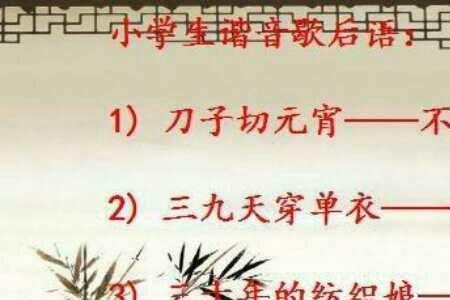 小学生谐音歇后语：
1）刀子切元宵——不
2）三九天穿单衣——
3）三十年的纺织娘—